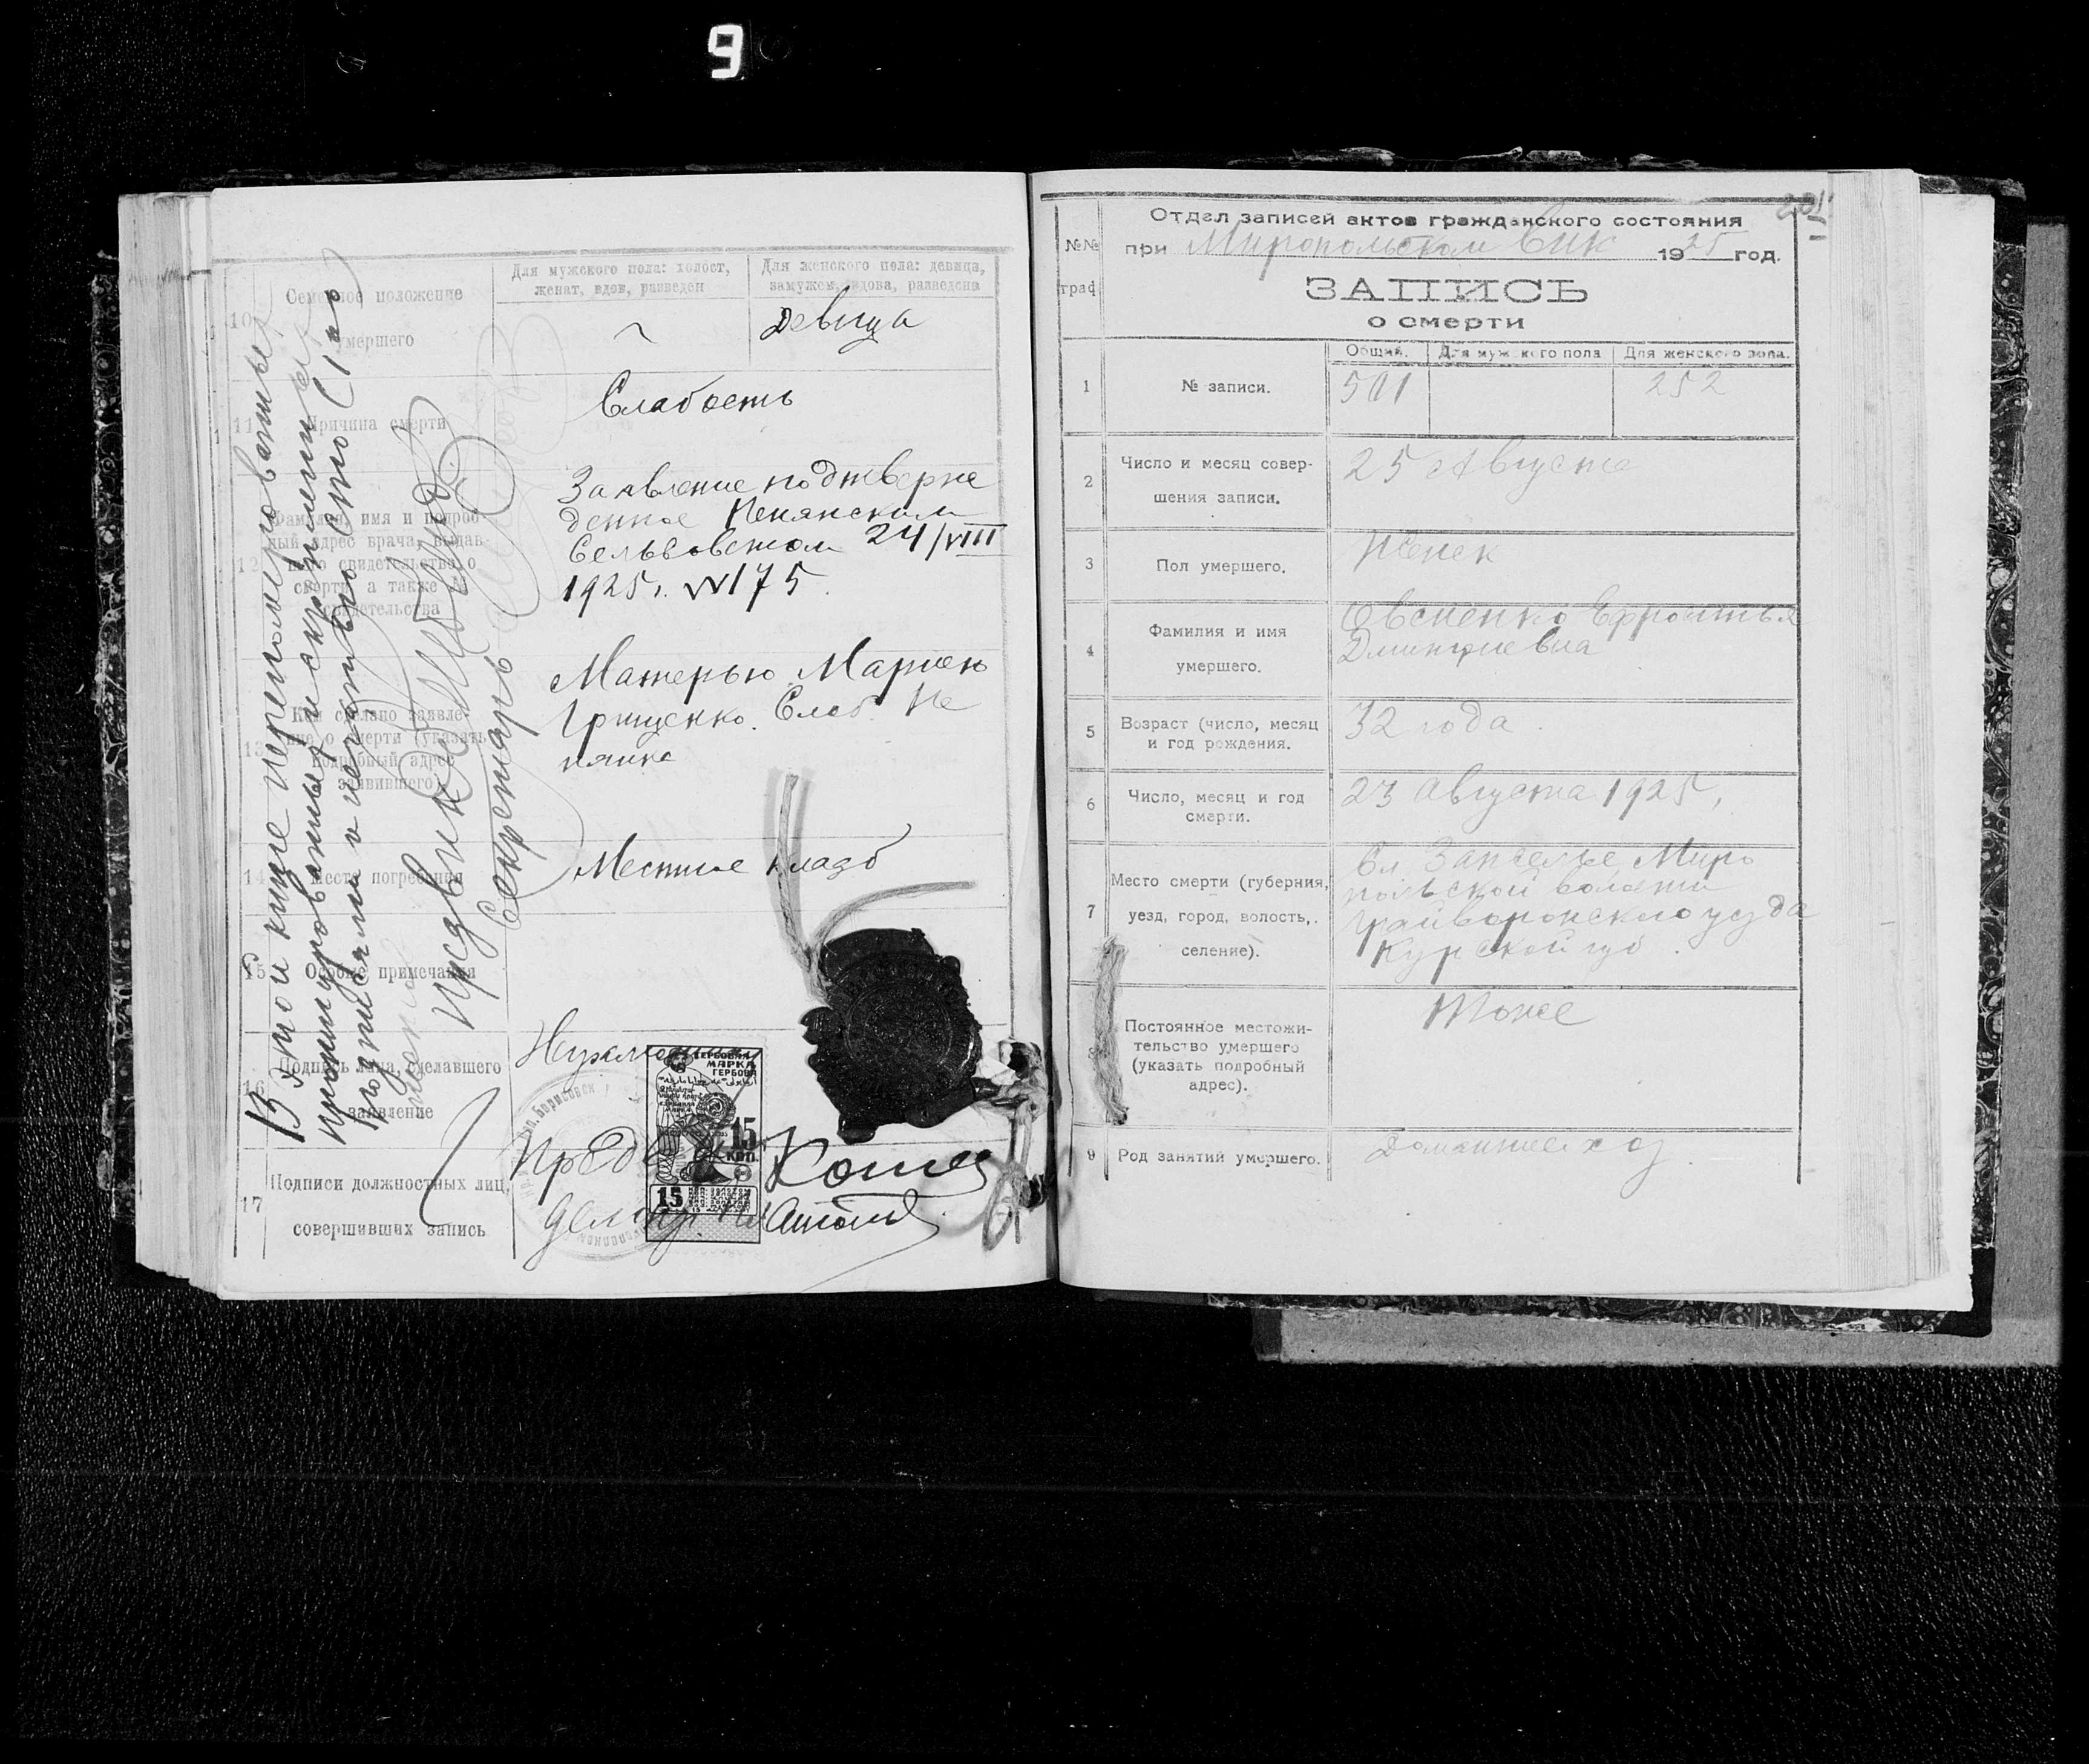 9
10
Семейное положение
умершего
Для мужского пола: холост,
женат, вдов, разведен
Для женского пола: девица,
замужем, вдова, разведена
Девица
11
Причина смерти
Слабость
12
Фамилия, имя и подроб-
ный адрес врача, выдав-
шего свидетельство о
смерти, а также №
свидетельства
Заявление подтверже
денное Пенянским
Сельсоветом 24/VIII
1925г. №175.
13
Кем сделано заявле-
ние о смерти (указать
подробный адрес
заявившего)
Матерью Мариею
Грищенко. Слоб. Пе
нянка
14
Место погребения
Местное кладб
15
Особые примечания
16
Подпись лица, сделавшего
заявление
Неграмотная
17
Подписи должностных лиц,
совершивших запись
ГЕРБОВАЯ
МАРКА
ГЕРБОВА
15
КОП.
15
В этой книге перенумерованных
прошнурованных и скрепленных
подписями и печатью сто (100)
Секретарь
201
№№
граф.
Отдел записей актов гражданского состояния
при Миропольском ВИК 1925 год.
ЗАПИСЬ
о смерти
1
№ записи.
Общий.
Для мужского пола
Для женского пола.
501
252
2
Число и месяц совер-
шения записи.
25 Августа
3
Пол умершего.
Женск
4
Фамилия и имя
умершего.
Овсиенко Ефросинья
Дмитриевна
5
Возраст (число, месяц
и год рождения.
32 года.
6
Число, месяц и год
смерти.
23 Августа 1925,
7
Место смерти (губерния,
уезд, город, волость,.
селение).
Сл. Запселье, Миро
польской волости
Грайворонского уезда
Курской губ.
8
Постоянное местожи-
тельство умершего
(указать подробный
адрес).
Тоже
9
Род занятий умершего.
Домашнее хоз